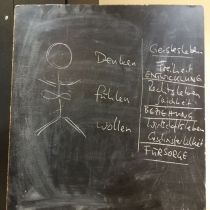 Denken
fühlen
wollen
Geistesleben
Freiheit
ENTWICKLUNG
Rechtsleben
Gleichheit
BEZIEHUNG
Wirtschaftsleben
Geschwisterlichkeit
FÜRSORGE